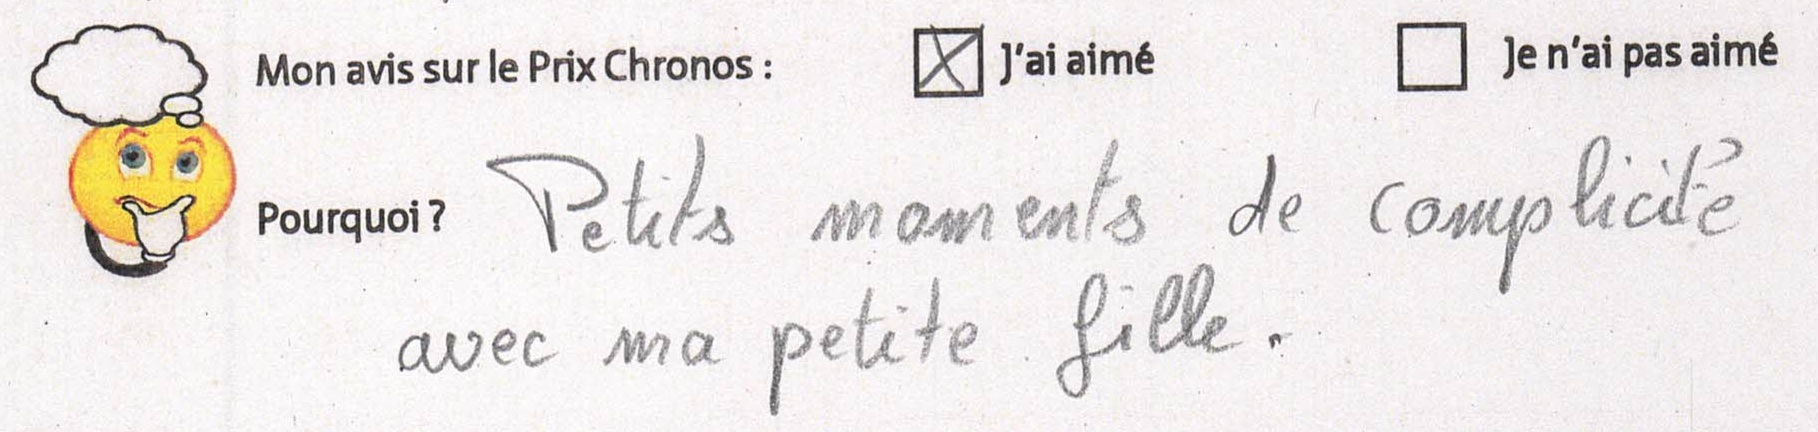 Mon avis sur le Prix Chronos : ☒ J'ai aimé ☐ Je n'ai pas aimé
Pourquoi ? Petits moments de complicité
avec ma petite fille.